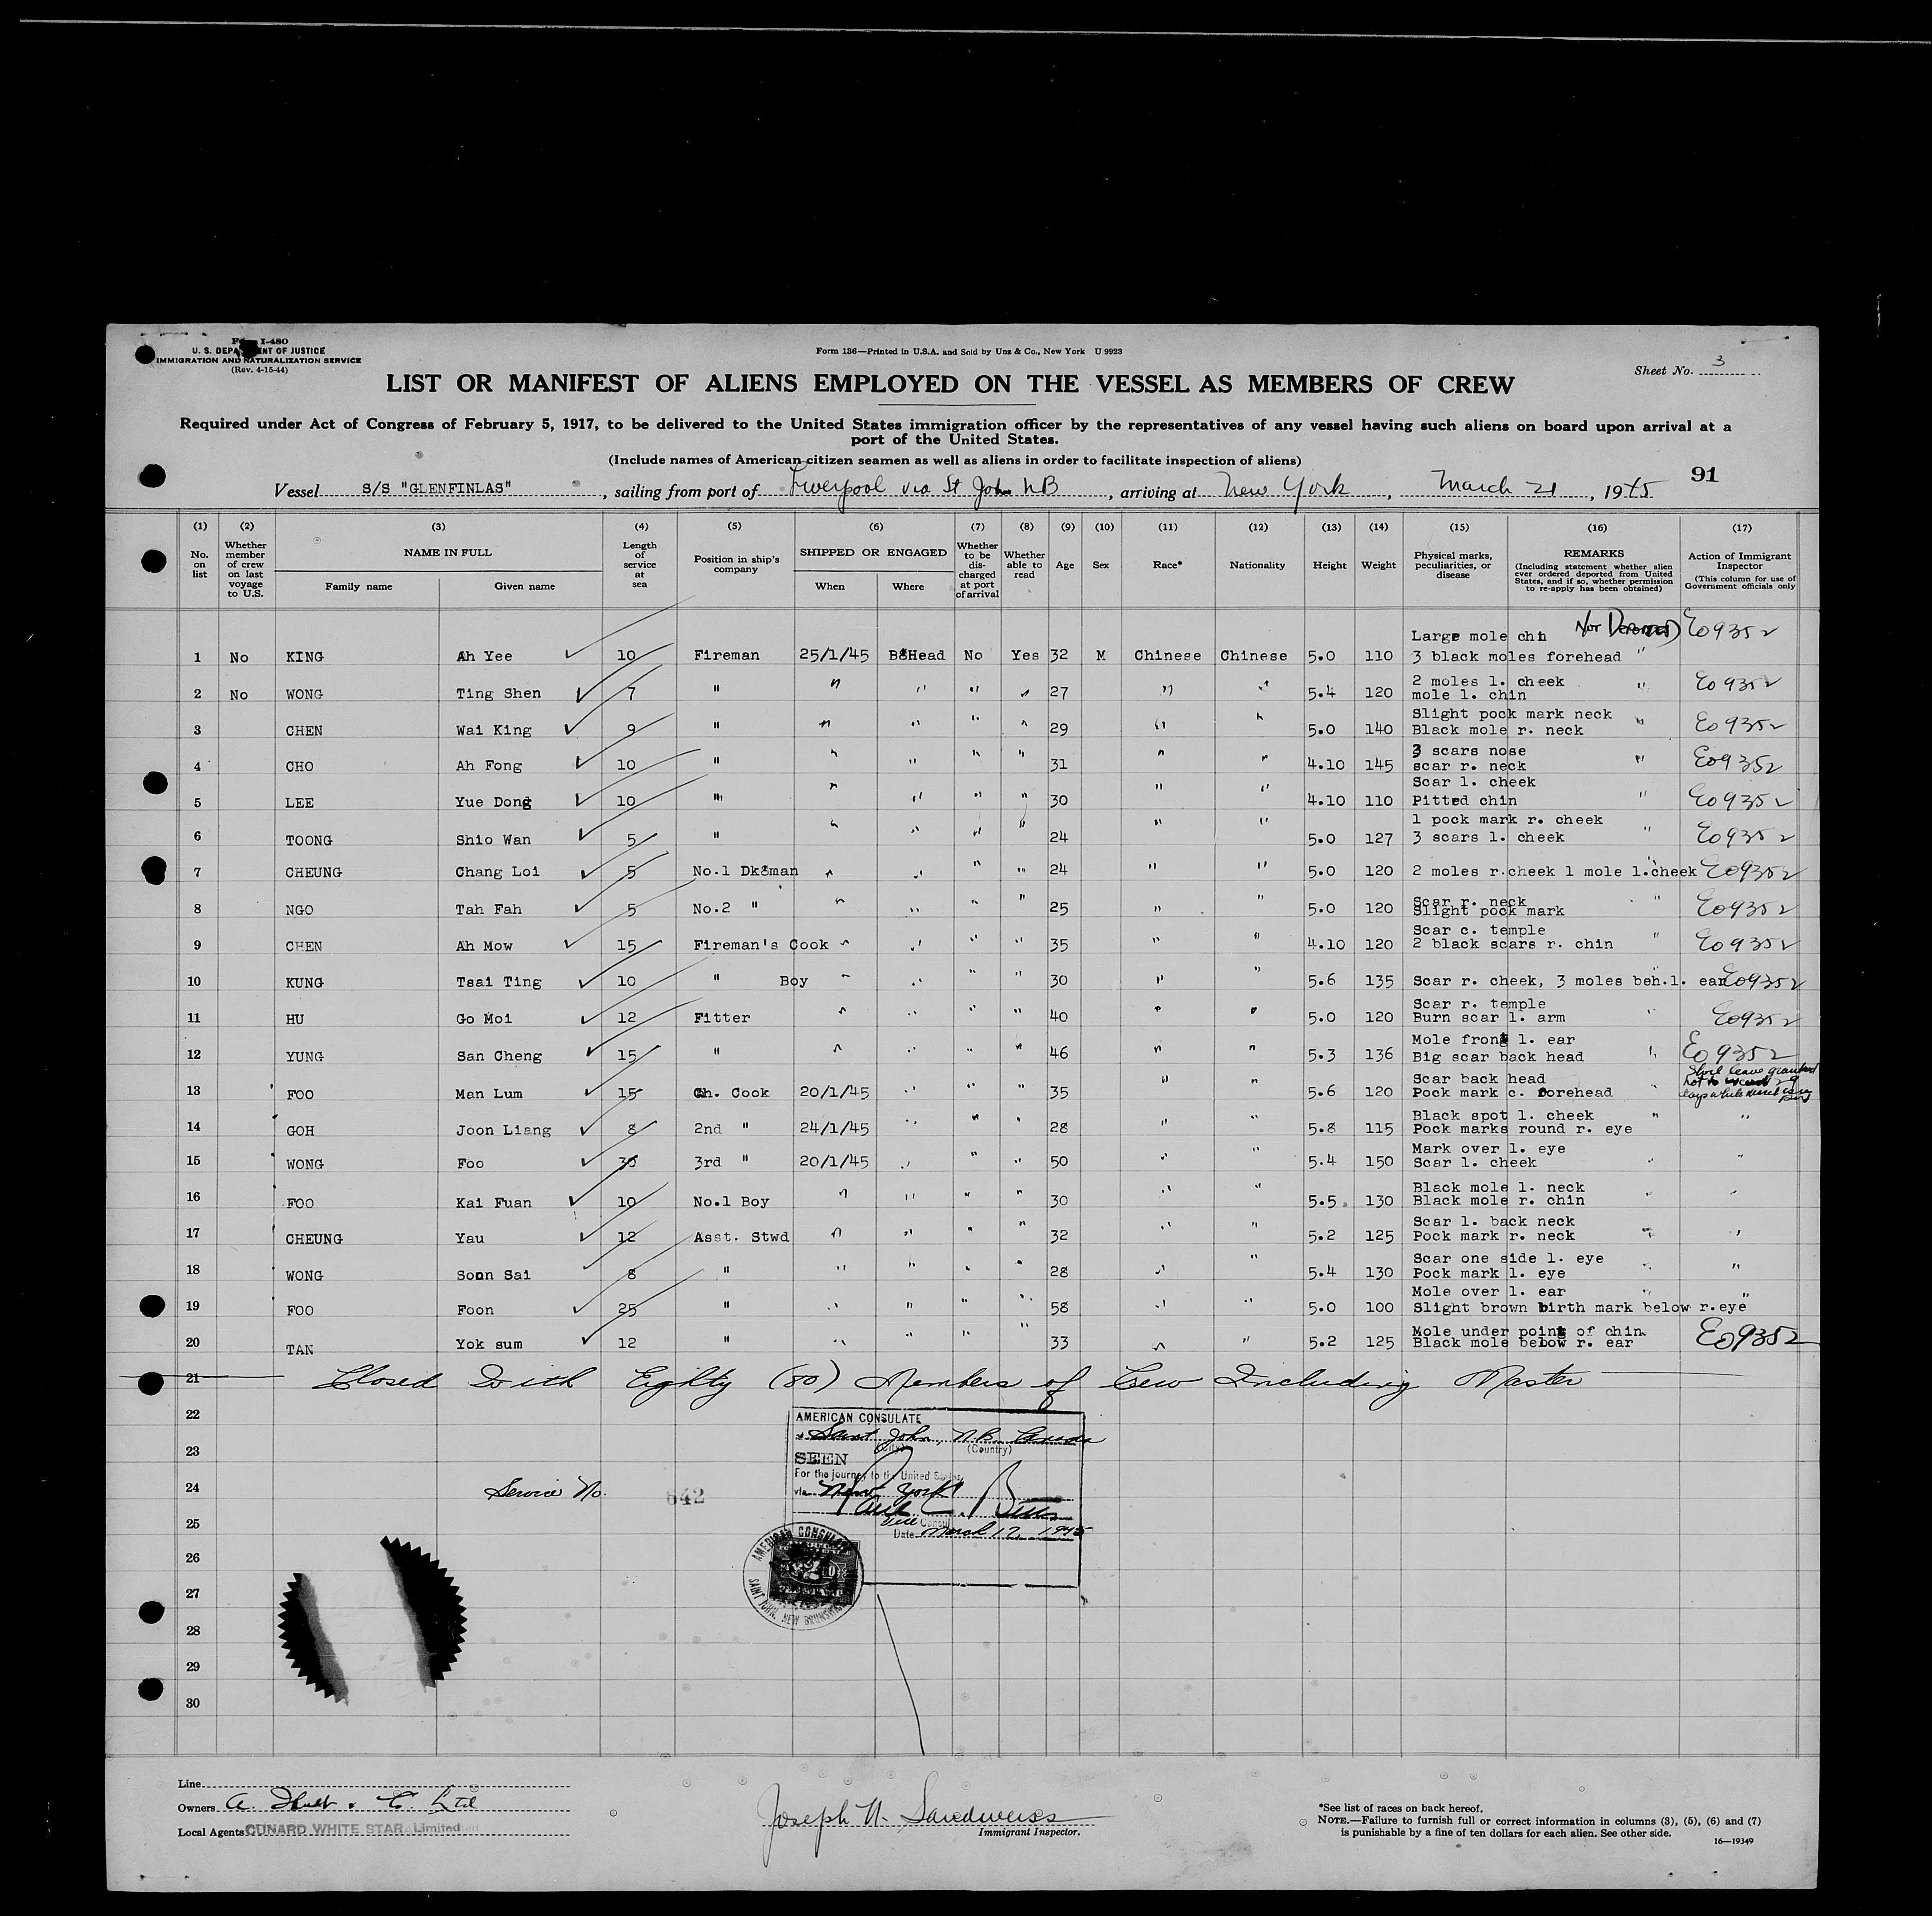 Form I-480
U. S. DEPARTMENT OF JUSTICE
IMMIGRATION AND NATURALIZATION SERVICE
(Rev. 4-15-44)
Form 136—Printed in U.S.A. and Sold by Unz & Co., New York U 9923
Sheet No. 3
LIST OR MANIFEST OF ALIENS EMPLOYED ON THE VESSEL AS MEMBERS OF CREW
Required under Act of Congress of February 5, 1917, to be delivered to the United States immigration officer by the representatives of any vessel having such aliens on board upon arrival at a
port of the United States.
(Include names of American citizen seamen as well as aliens in order to facilitate inspection of aliens)
91
Vessel S/S "GLENFINLAS", sailing from port of Liverpool via St John NB, arriving at New York, March 21, 1945
(1) (2) (3) (4) (5) (6) (7) (8) (9) (10) (11) (12) (13) (14) (15) (16) (17)
No. on list
Whether member of crew on last voyage to U.S.
NAME IN FULL
Family name
Given name
Length of service at sea
Position in ship's company
SHIPPED OR ENGAGED
When
Where
Whether to be discharged at port of arrival
Whether able to read
Age
Sex
Race*
Nationality
Height
Weight
Physical marks, peculiarities, or disease
REMARKS
(Including statement whether alien ever ordered deported from United States, and if so, whether permission to re-apply has been obtained)
Action of Immigrant Inspector
(This column for use of Government officials only
Large mole chin Not Deported Eo9352
1 No KING Ah Yee 10 Fireman 25/1/45 B'Head No Yes 32 M Chinese Chinese 5.0 110 3 black moles forehead "
2 No WONG Ting Shen 7 " " " " " 27 " " 5.4 120 2 moles l. cheek " Eo9352
mole l. chin
3 CHEN Wai King 9 " " " " " 29 " " 5.0 140 Slight pock mark neck " Eo9352
Black mole r. neck
4 CHO Ah Fong 10 " " " " " 31 " " 4.10 145 3 scars nose " Eo9352
scar r. neck
5 LEE Yue Dong 10 " " " " " 30 " " 4.10 110 Scar l. cheek " Eo9352
Pitted chin
6 TOONG Shio Wan 5 " " " " " 24 " " 5.0 127 1 pock mark r. cheek " Eo9352
3 scars l. cheek
7 CHEUNG Chang Loi 5 No.1 Dk8man " " " " 24 " " 5.0 120 2 moles r.cheek 1 mole l.cheek " Eo9352
8 NGO Tah Fah 5 No.2 " " " " " 25 " " 5.0 120 Scar r. neck " Eo9352
Slight pock mark
9 CHEN Ah Mow 15 Fireman's Cook " " " " 35 " " 4.10 120 Scar c. temple " Eo9352
2 black scars r. chin
10 KUNG Tsai Ting 10 " Boy " " " " 30 " " 5.6 135 Scar r. cheek, 3 moles beh.l. ear " Eo9352
11 HU Go Moi 12 Fitter " " " " 40 " " 5.0 120 Scar r. temple " Eo9352
Burn scar l. arm
12 YUNG San Cheng 15 " " " " " 46 " " 5.3 136 Mole front l. ear " Eo9352
Big scar back head
13 FOO Man Lum 15 Ch. Cook 20/1/45 " " " 35 " " 5.6 120 Scar back head " Shore leave granted
Pock mark c. forehead not to exceed 29
days while vessel is in port
14 GOH Joon Liang 8 2nd " 24/1/45 " " " 28 " " 5.8 115 Black spot l. cheek " "
Pock marks round r. eye
15 WONG Foo 30 3rd " 20/1/45 " " " 50 " " 5.4 150 Mark over l. eye " "
Scar l. cheek
16 FOO Kai Fuan 10 No.1 Boy " " " " 30 " " 5.5 130 Black mole l. neck " "
Black mole r. chin
17 CHEUNG Yau 12 Asst. Stwd " " " " 32 " " 5.2 125 Scar l. back neck " "
Pock mark r. neck
18 WONG Soon Sai 8 " " " " " 28 " " 5.4 130 Scar one side l. eye " "
Pock mark l. eye
19 FOO Foon 25 " " " " " 58 " " 5.0 100 Mole over l. ear " "
Slight brown birth mark below r.eye
20 TAN Yok sum 12 " " " " " 33 " " 5.2 125 Mole under point of chin Eo9352
Black mole below r. ear
21 Closed With Eighty (80) Members of Crew Including Master
22
AMERICAN CONSULATE
Saint John, N.B. Canada
23
(City) (Country)
SEEN
For the journey to the United States
24 Service No. 642
via New York
25
Vice Consul
Date March 17, 1945
26
AMERICAN CONSULATE
SAINT JOHN, NEW BRUNSWICK
27
28
29
30
Line
Owners A. Holt & Co. Ltd
Local Agents CUNARD WHITE STAR Limited
Joseph N. Sandweiss
Immigrant Inspector.
*See list of races on back hereof.
NOTE.—Failure to furnish full or correct information in columns (3), (5), (6) and (7)
is punishable by a fine of ten dollars for each alien. See other side.
16—19349